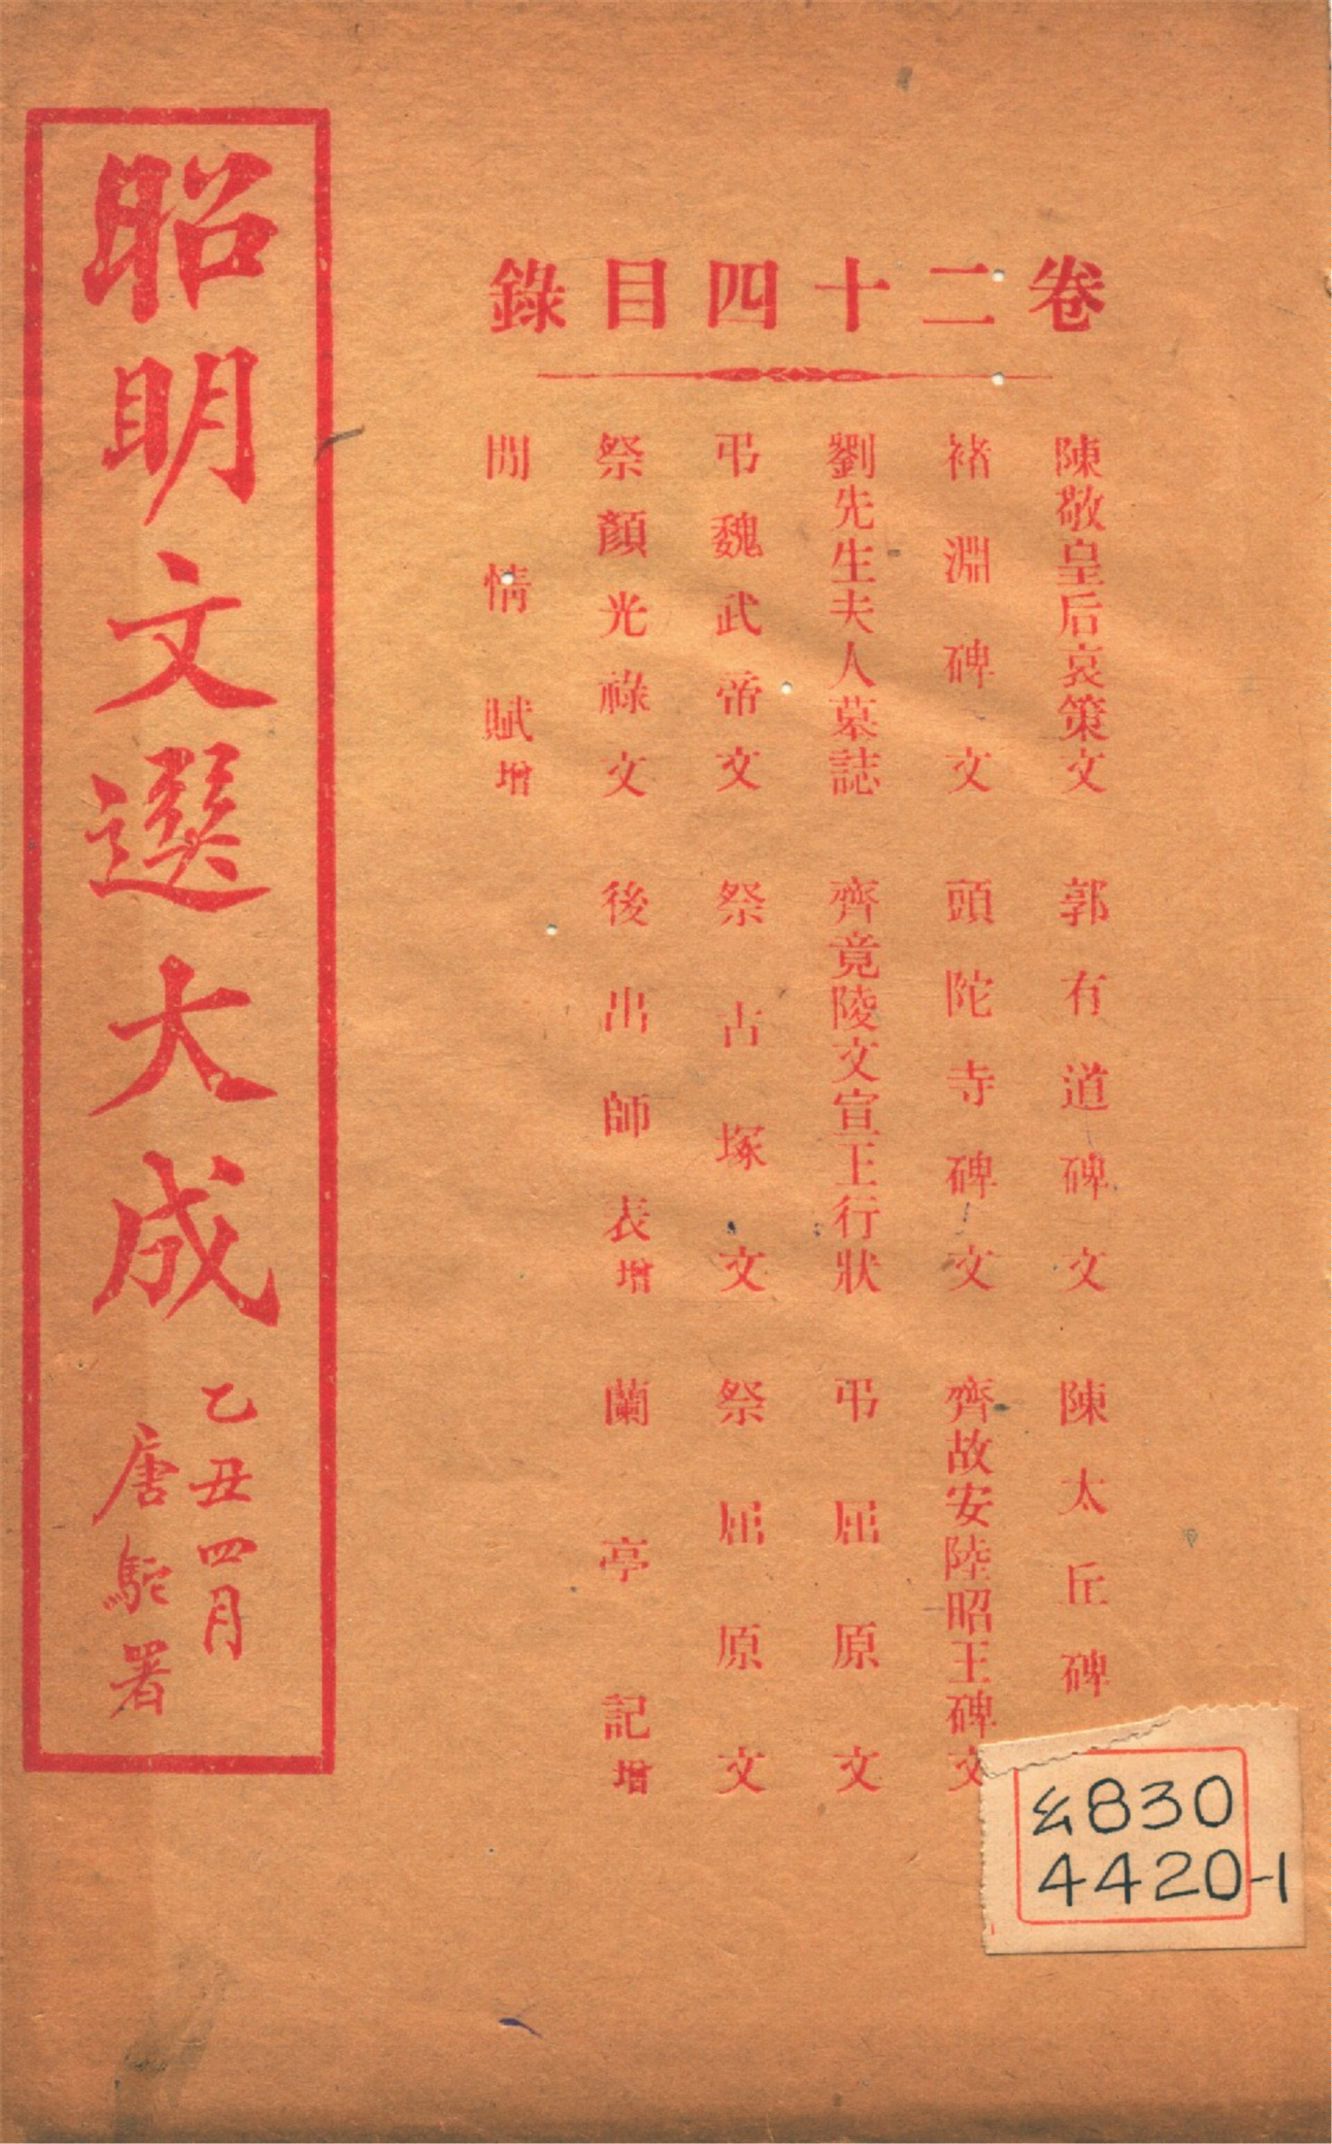 卷二十四目錄
陳敬皇后哀策文　郭有道碑文　陳太丘碑
褚淵碑文　頭陀寺碑文　齊故安陸昭王碑文
劉先生夫人墓誌　齊竟陵文宣王行狀　弔屈原文
弔魏武帝文　祭古塚文　祭屈原文
祭顏光祿文　後出師表增　蘭亭記增
閒情賦增
昭明文選大成
乙丑四月
唐駝署
830
4420-1